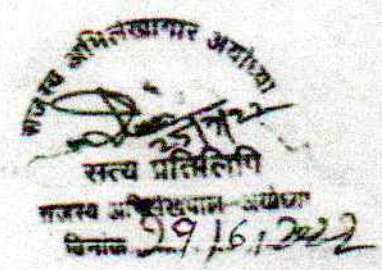 राजस्व अभिलेखागार अयोध्या
सत्य प्रतिलिपि
राजस्व अभिलेखपाल-अयोध्या
दिनांक 29/6/2022